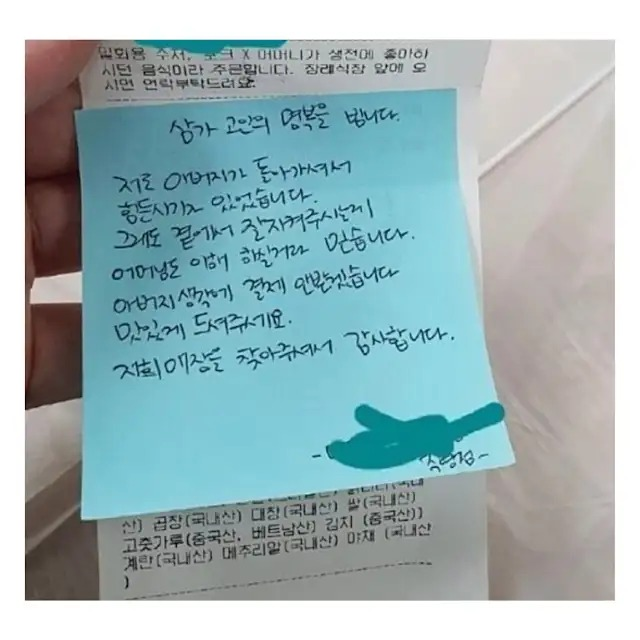 일회용 수저, 포크 X 어머니가 생전에 좋아하
시던 음식이라 주문합니다. 장례식장 앞에 오
시면 연락부탁드려요.
삼가 고인의 명복을 빕니다.
저도 아버지가 돌아가셔서
힘든시기가 있었습니다.
그래도 곁에서 잘지켜주시는게
어머님도 이해 하실거라 믿습니다.
아버지생각에 결제 안받겠습니다
맛있게 드셔주세요.
저희매장을 찾아주셔서 감사합니다.
산) 곱창(국내산) 대창(국내산) 쌀(국내산)
고춧가루(중국산, 베트남산) 김치(중국산))
계란(국내산) 메추리알(국내산) 야채 (국내산
)